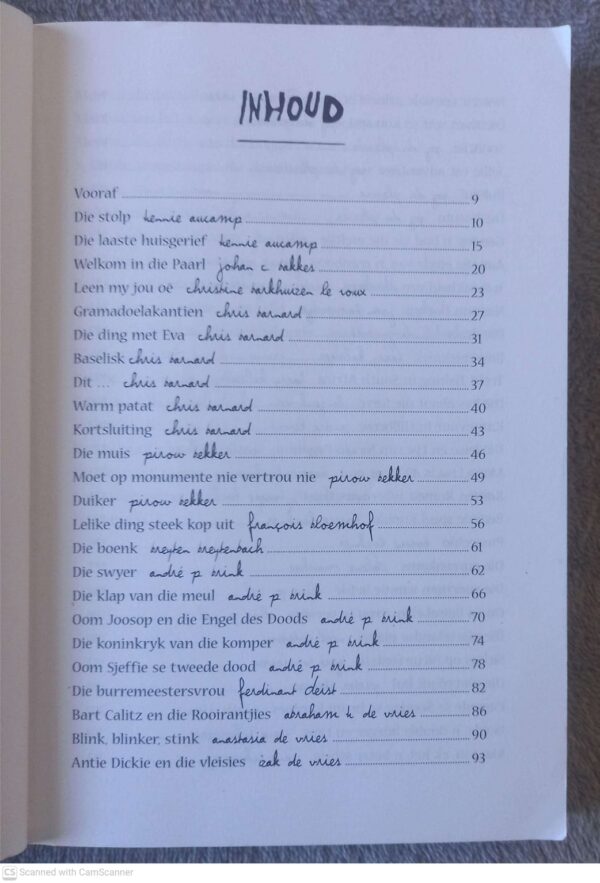 INHOUD
Vooraf 9
Die stolp hennie aucamp 10
Die laaste huisgerief hennie aucamp 15
Welkom in die Paarl johan c bakkes 20
Leen my jou oë christine barkhuizen le roux 23
Gramadoelakantien chris barnard 27
Die ding met Eva chris barnard 31
Baselisk chris barnard 34
Dit ... chris barnard 37
Warm patat chris barnard 40
Kortsluiting chris barnard 43
Die muis pirow bekker 46
Moet op monumente nie vertrou nie pirow bekker 49
Duiker pirow bekker 53
Lelike ding steek kop uit françois bloemhof 56
Die boenk breyten breytenbach 61
Die swyer andré p brink 62
Die klap van die meul andré p brink 66
Oom Joosop en die Engel des Doods andré p brink 70
Die koninkryk van die komper andré p brink 74
Oom Sjeffie se tweede dood andré p brink 78
Die burremeestersvrou ferdinant deist 82
Bart Calitz en die Rooirantjies abraham h de vries 86
Blink, blinker, stink anastasia de vries 90
Antie Dickie en die vleisies izak de vries 93
CS Scanned with CamScanner